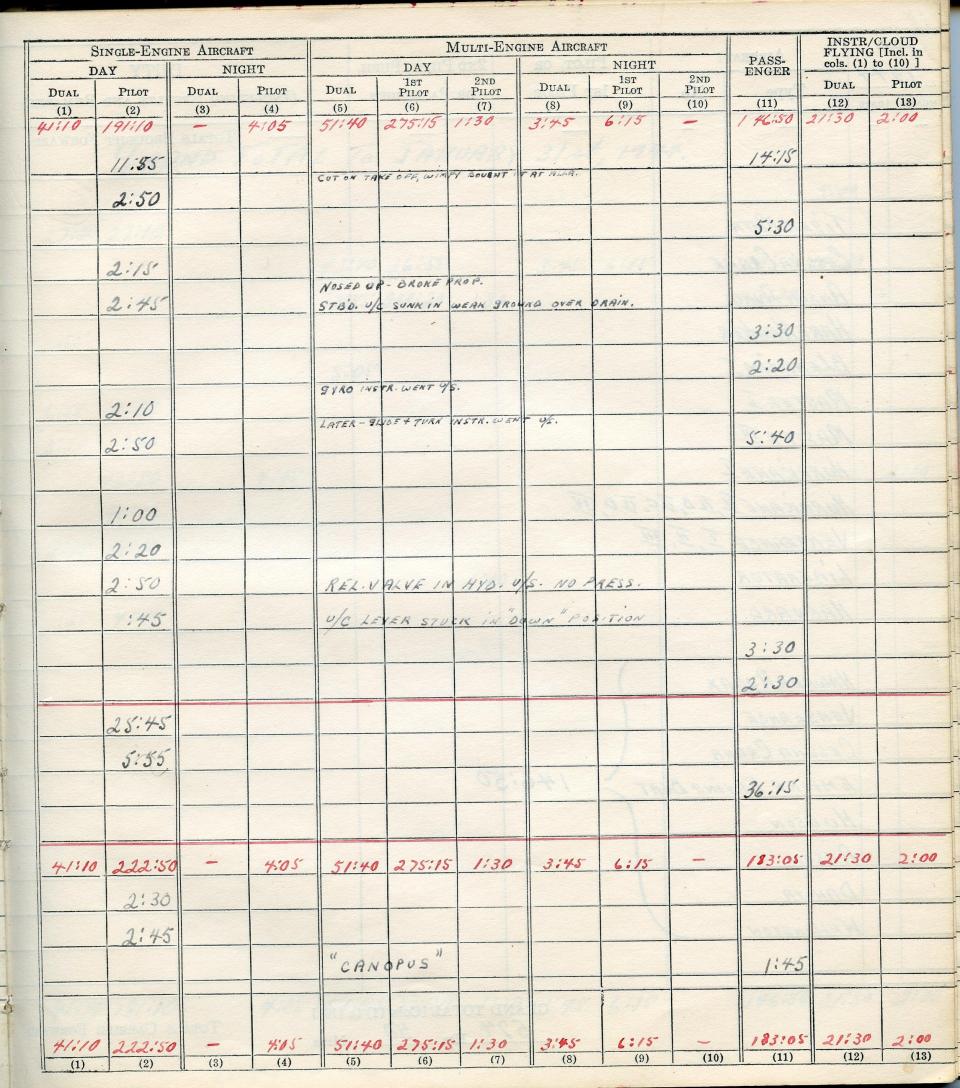 SINGLE-ENGINE AIRCRAFT MULTI-ENGINE AIRCRAFT PASS-ENGER INSTR/CLOUD FLYING [Incl. in cols. (1) to (10) ]
DAY NIGHT DAY NIGHT
DUAL PILOT DUAL PILOT DUAL 1ST PILOT 2ND PILOT DUAL 1ST PILOT 2ND PILOT DUAL PILOT
(1) (2) (3) (4) (5) (6) (7) (8) (9) (10) (11) (12) (13)
41:10 191:10 - 4:05 51:40 275:15 1:30 3:45 6:15 - 146:50 21:30 2:00
11:55 14:15
CUT ON TAKE OFF, WIMPY BOUGHT IT AT
2:50
5:30
2:15
NOSED UP - BROKE PROP.
2:45 STB'D. U/C SUNK IN WEAK GROUND OVER DRAIN.
3:30
2:20
GYRO INSTR. WENT U/S.
2:10
LATER - GLIDE + TURN INSTR. WENT U/S.
2:50 5:40
1:00
2:20
2:50 REL. VALVE IN HYD. U/S. NO PRESS.
:45 U/C LEVER STUCK IN "DOWN" POSITION
3:30
2:30
25:45
5:55
36:15
41:10 222:50 - 4:05 51:40 275:15 1:30 3:45 6:15 - 183:05 21:30 2:00
2:30
2:45
"CANOPUS" 1:45
41:10 222:50 - 4:05 51:40 275:15 1:30 3:45 6:15 - 183:05 21:30 2:00
(1) (2) (3) (4) (5) (6) (7) (8) (9) (10) (11) (12) (13)